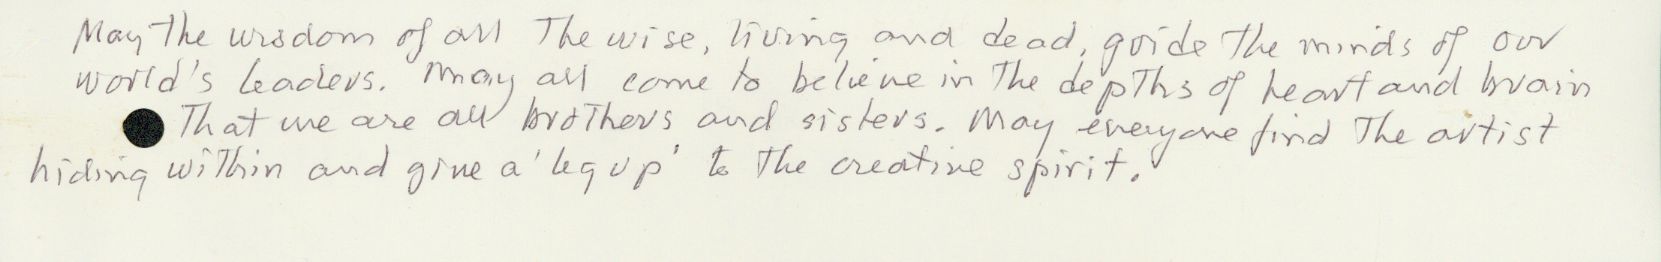 May the wisdom of all the wise, living and dead, guide the minds of our
world's leaders. May all come to believe in the depths of heart and brain
that we are all brothers and sisters. May everyone find the artist
hiding within and give a 'leg up' to the creative spirit.